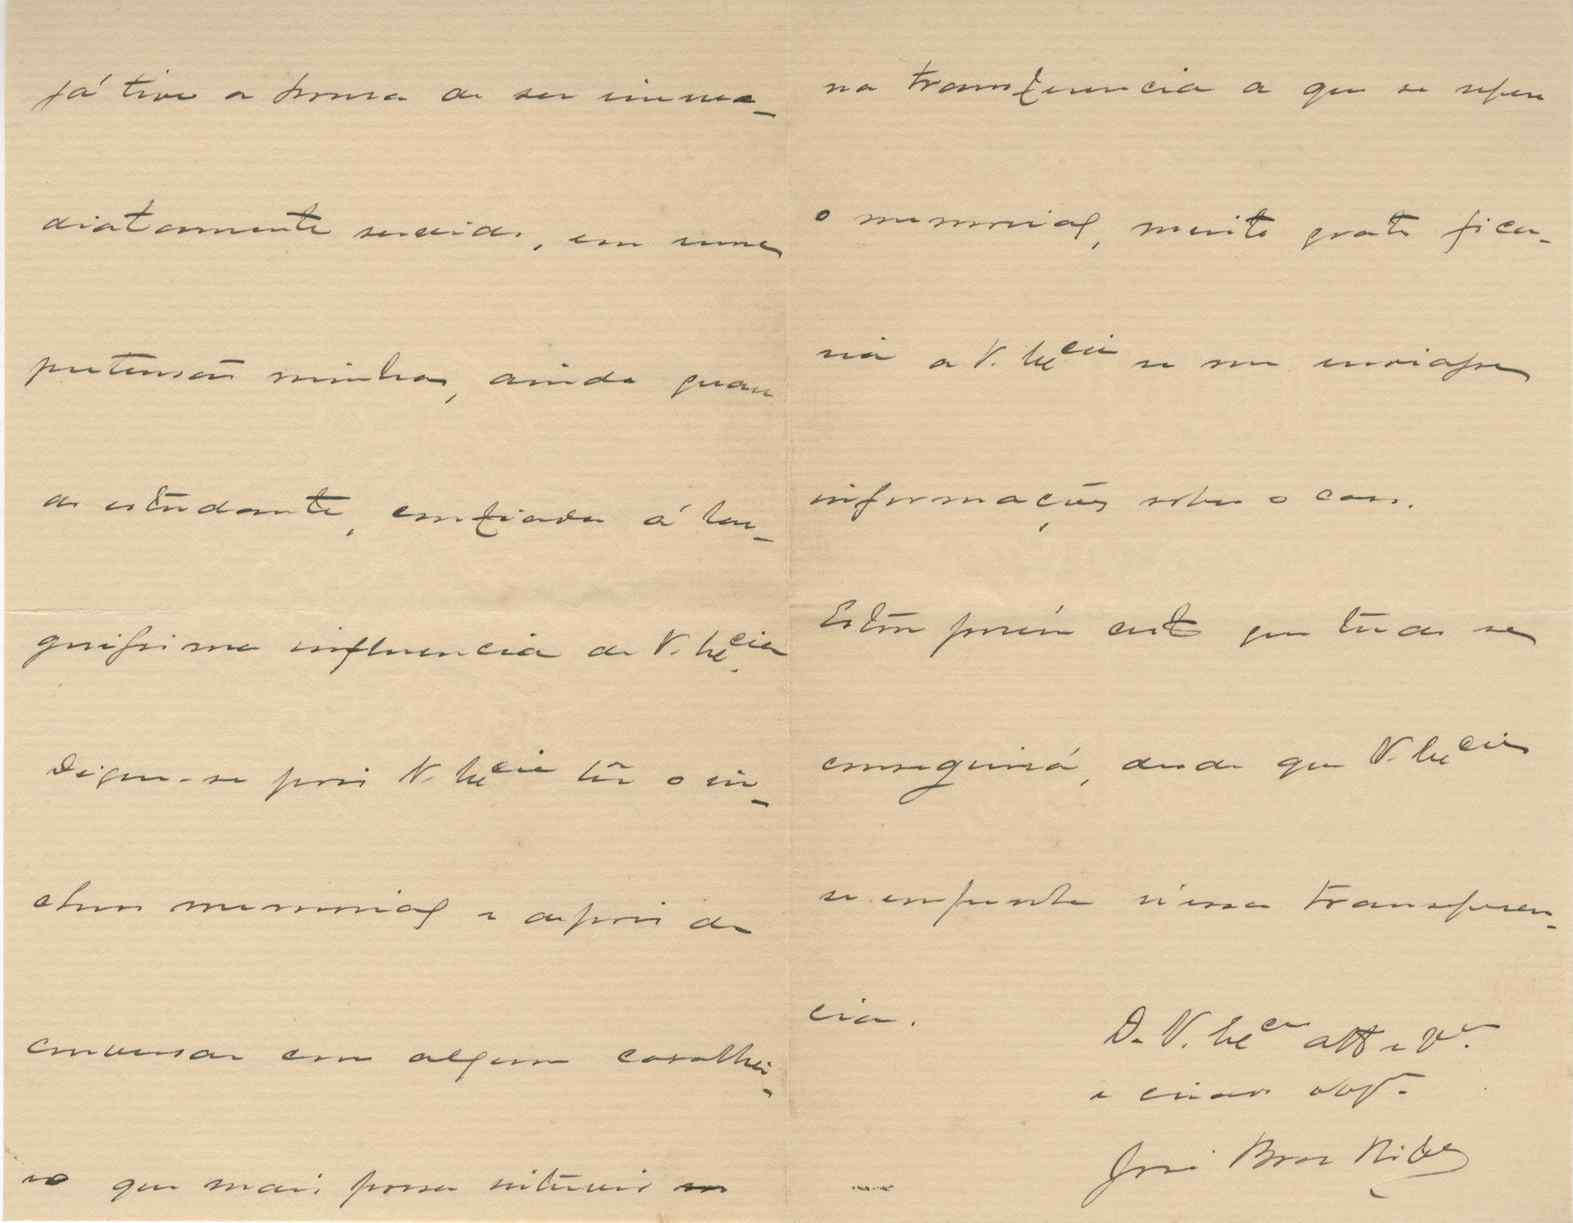 já tive a honra de ser imme-
diatamente servido, em uma
pretensão minha, ainda quan
do estudante, confiada á lar-
guissima influencia de V. Ex.cia
Digne-se pois V. Ex.cia lêr o in-
cluso memorial e depois de
conversar com algum cavalhei-
ro que mais possa intervir
na transferencia a que se refere
o memorial, muito grato fica-
ria a V. Ex.cia se me enviasse
informações sobre o caso.
Estou porém certo que tudo se
conseguirá, desde que V. Ex.cia
se empenhe n'essa transferen-
cia.
De V. Ex.cia att.º e V.or
e criado obg.º
José Braz